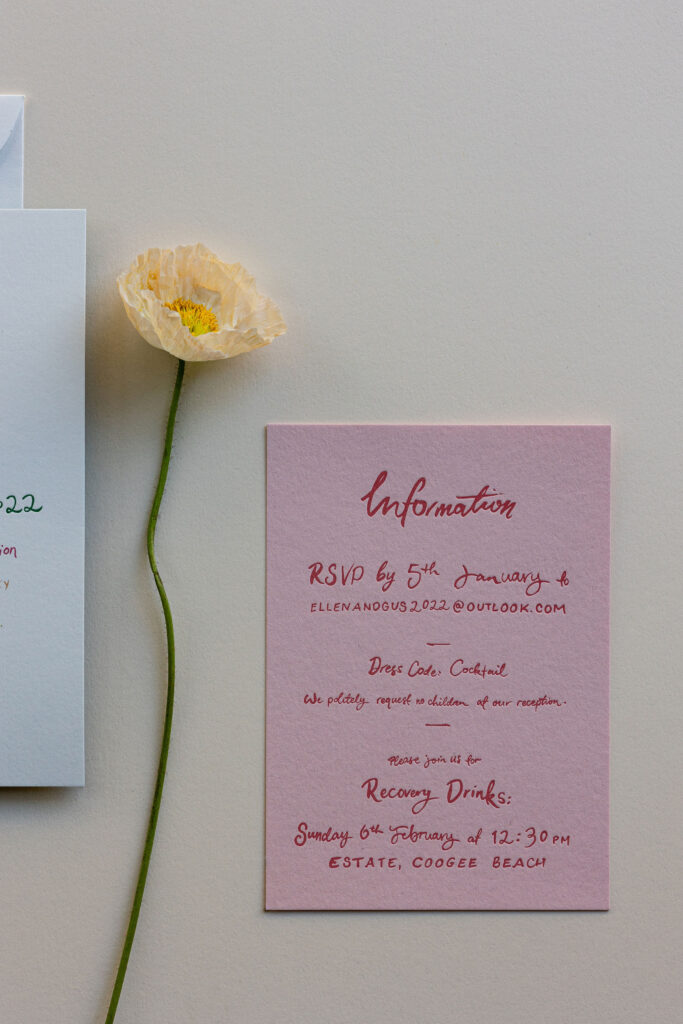 022
ion
Information
RSVP by 5th January to
ELLENANDGUS2022@OUTLOOK.COM
Dress Code: Cocktail
We politely request no children at our reception.
Please join us for
Recovery Drinks:
Sunday 6th February at 12:30PM
ESTATE, COOGEE BEACH